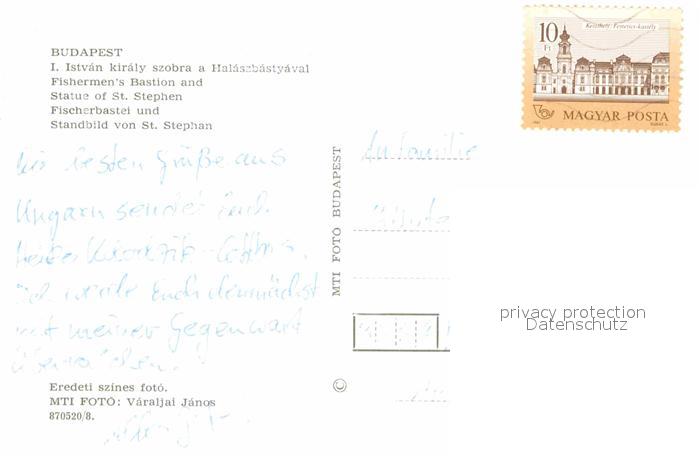 BUDAPEST
I. István király szobra a Halászbástyával
Fishermen's Bastion and
Statue of St. Stephen
Fischerbastei und
Standbild von St. Stephan
besten Grüße aus
Ungarn sendet Euch
Ich werde Euch demnächst
mit meiner Gegenwart
überraschen.
Eredeti színes fotó.
MTI FOTÓ: Váraljai János
870520/8.
MTI FOTÓ BUDAPEST
©
Keszthely: Festetics-kastély
10
Ft
MAGYAR POSTA
An Familie
privacy protection
Datenschutz